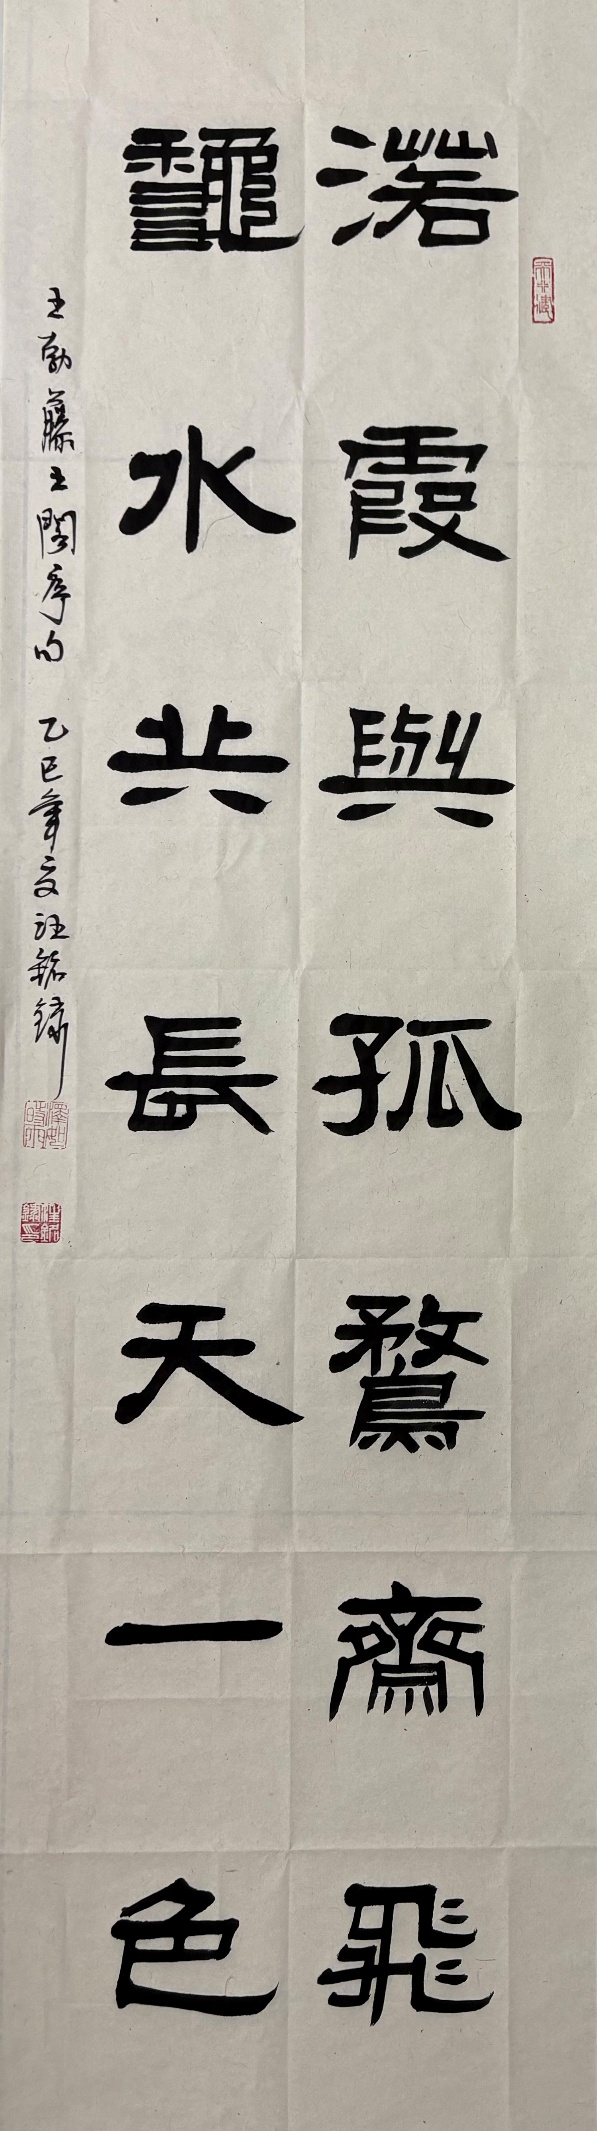 落霞與孤鶩齊飛
龝水共長天一色
王勃藤王閣序句 乙巳年夏汪銘鏽